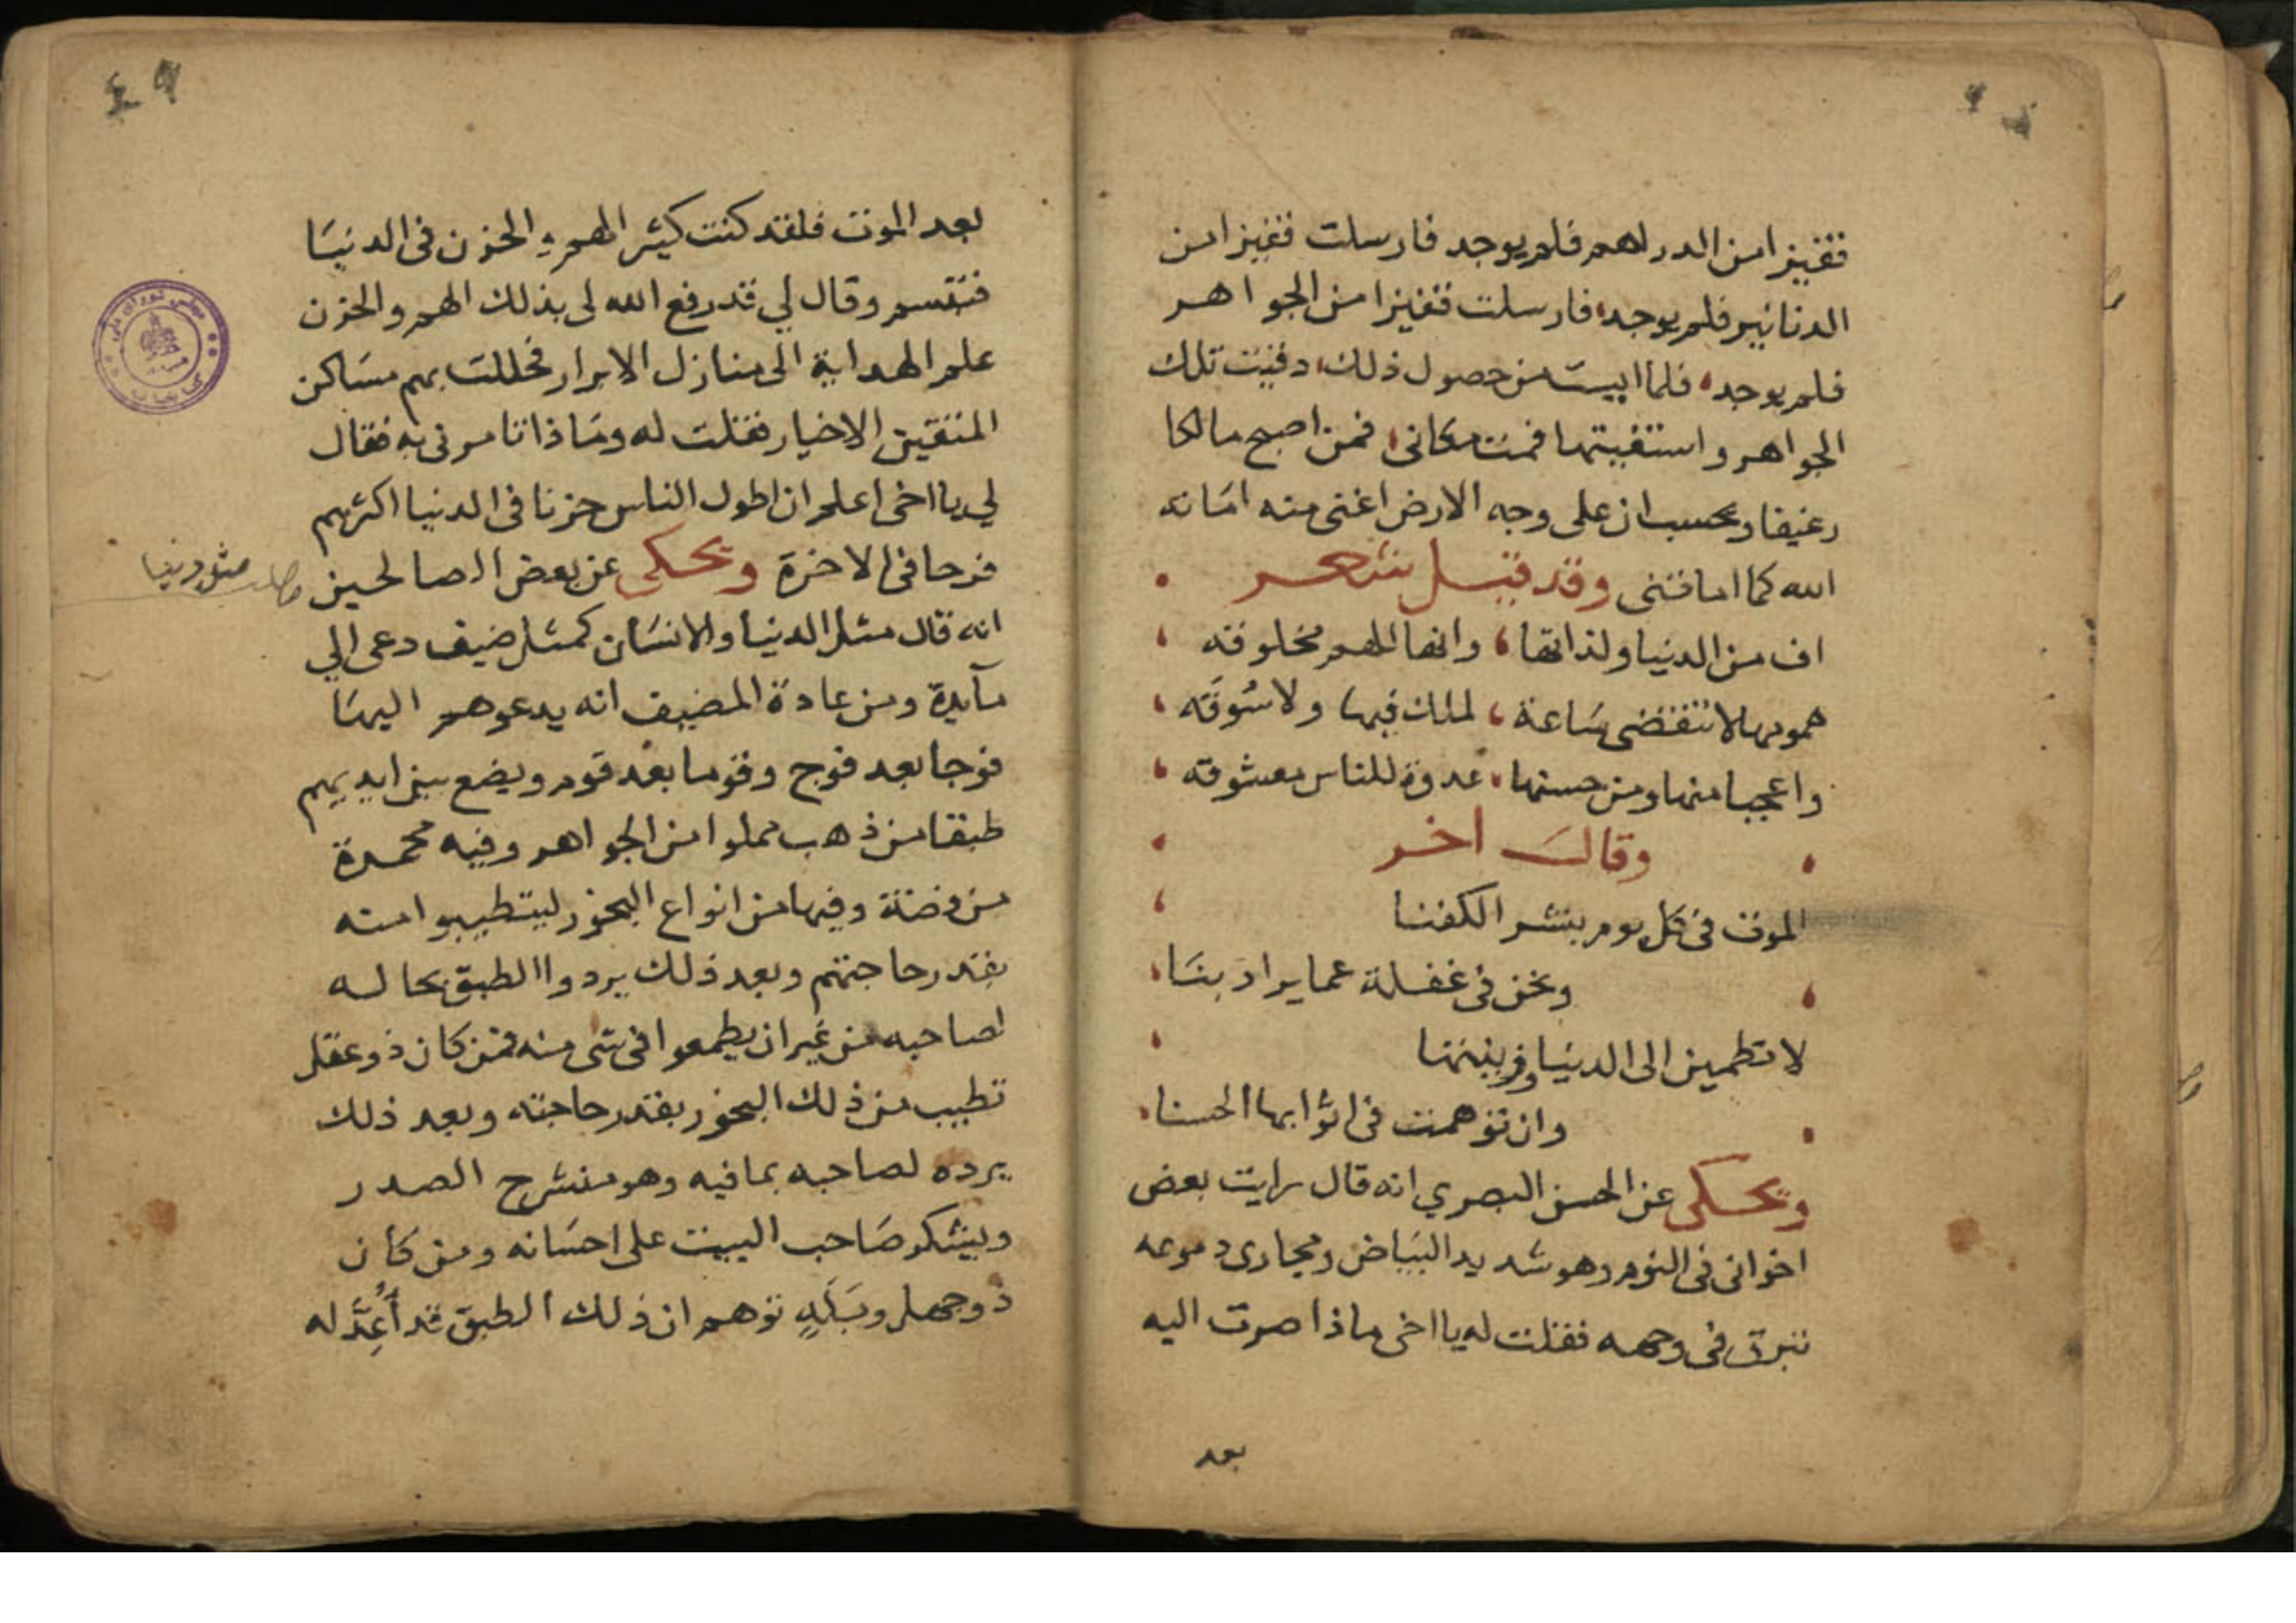 قفيزا من الدراهم فلم يوجد فارسلت قفيزا من
الدنانير فلم يوجد فارسلت قفيزا من الجواهر
فلم يوجد فلما ايست من حصول ذلك دقيت تلك
الجواهر واستفيتها فمت مكاني فمن اصبح مالكا
رغيفا ويحسب ان على وجه الارض اغنى منه اماته
الله كما اماتنى وقد قيل شعر
اف من الدنيا ولذاتها وانها للهم مخلوقه
همومها لا تنقضى ساعة لملك فيها ولا سُوقَه
واعجبا منها ومن حسنها عدوة للناس معشوقه
وقال اخر
الموت فى كل يوم ينشر الكفنا
ونحن فى غفلة عما يراد بنا
لا تطمين الى الدنيا وزينتها
وان توهمت فى اثوابها الحسنا
ويحكى عن الحسن البصري انه قال رايت بعض
اخوانى فى النوم وهو شديد البياض ومجارى دموعه
تبرق فى وجهه فقلت له يا اخى ماذا صرت اليه
بعد
٤٩
بعد الموت فلقد كنت كثير الهم والحزن فى الدنيا
فتبسم وقال لي قد رفع الله لى بذلك الهم والحزن
علم الهداية الى منازل الابرار فحللت بهم مساكن
المتقين الاخيار فقلت له وما ذا تامرنى به فقال
لي يا اخى اعلم ان اطول الناس حزنا فى الدنيا اكثرهم
فرحا فى الاخرة ويحكى عن بعض الصالحين
مطلب مثل دنيا
انه قال مثل الدنيا والانسان كمثل ضيف دعى الي
مآيدة ومن عادة المضيف انه يدعوهم اليها
فوجا بعد فوج وقوما بعد قوم ويضع بين ايديهم
طبقا من ذهب مملوا من الجواهر وفيه مجمرة
من فضة وفيها من انواع البخور ليتطيبوا منه
بقدر حاجتهم وبعد ذلك يردوا الطبق بحاله
لصاحبه من غير ان يطمعوا فى شى منه فمن كان ذو عقل
تطيب من ذلك البخور بقدر حاجته وبعد ذلك
يرده لصاحبه بما فيه وهو منشرح الصدر
ويشكر صاحب البيت على احسانه ومن كان
ذو جهل وبَلَهٍ توهم ان ذلك الطبق قد أُعِدَّ له